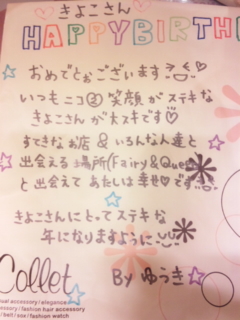 きよこさん
HAPPYBIRTH
おめでとぉございます
いつもニコ②笑顔がステキな
きよこさんが大スキです♡
すてきなお店&いろんな人達と
出会える場所(Fairy&Que
と出会えてあたしは幸せ♡です
きよこさんにとってステキな
年になりますように
By ゆうき☆
Collet
sual accessory/elegance
essory/fashion hair accessory
/belt/sox/fashion watch